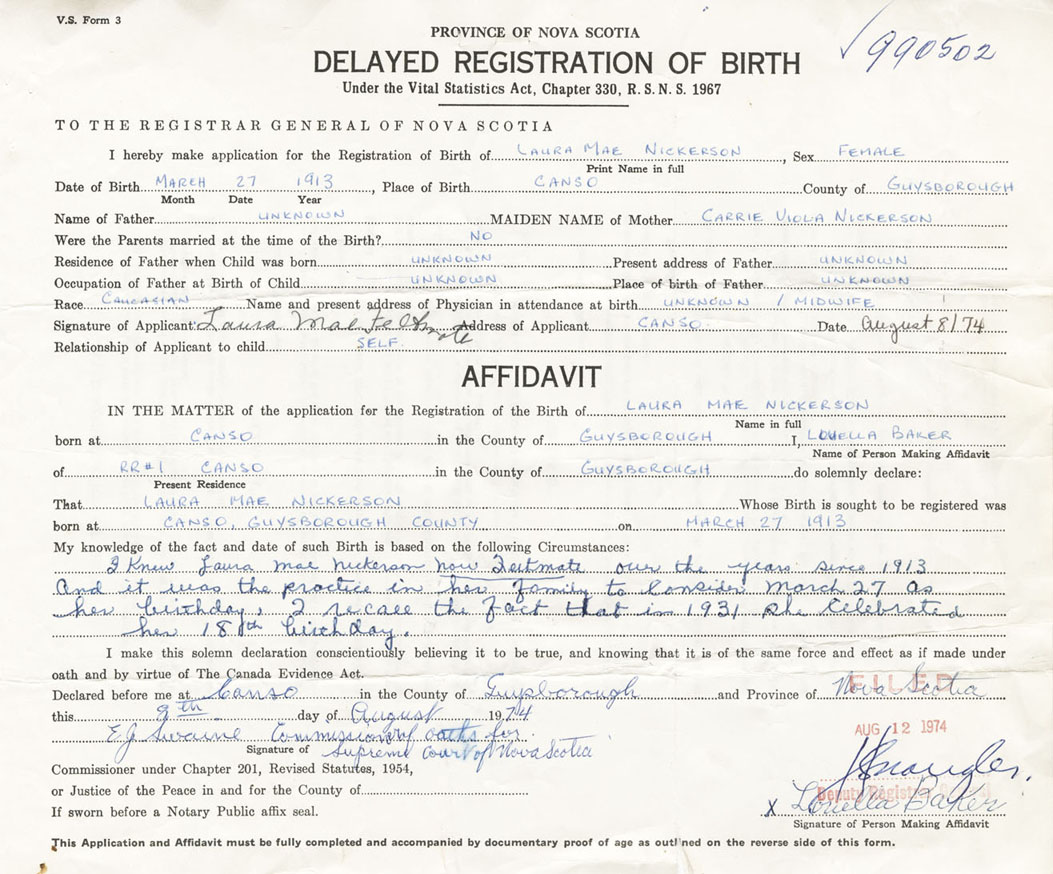 V.S. Form 3
PROVINCE OF NOVA SCOTIA
√990502
DELAYED REGISTRATION OF BIRTH
Under the Vital Statistics Act, Chapter 330, R. S. N. S. 1967
TO THE REGISTRAR GENERAL OF NOVA SCOTIA
I hereby make application for the Registration of Birth of LAURA MAE NICKERSON, Sex FEMALE
Print Name in full
Date of Birth MARCH 27 1913, Place of Birth CANSO County of GUYSBOROUGH
Month Date Year
Name of Father UNKNOWN MAIDEN NAME of Mother CARRIE VIOLA NICKERSON
Were the Parents married at the time of the Birth? NO
Residence of Father when Child was born UNKNOWN Present address of Father UNKNOWN
Occupation of Father at Birth of Child UNKNOWN Place of birth of Father UNKNOWN
Race CAUCASIAN Name and present address of Physician in attendance at birth UNKNOWN / MIDWIFE
Signature of Applicant Laura Mae Feltmate Address of Applicant CANSO Date August 8/74
Relationship of Applicant to child SELF
AFFIDAVIT
IN THE MATTER of the application for the Registration of the Birth of LAURA MAE NICKERSON
Name in full
born at CANSO in the County of GUYSBOROUGH I, LOUELLA BAKER
Name of Person Making Affidavit
of RR#1 CANSO in the County of GUYSBOROUGH do solemnly declare:
Present Residence
That LAURA MAE NICKERSON Whose Birth is sought to be registered was
born at CANSO, GUYSBOROUGH COUNTY on MARCH 27 1913
My knowledge of the fact and date of such Birth is based on the following Circumstances:
I Knew Laura Mae Nickerson now Feltmate over the years since 1913
And it was the practice in her family to Consider March 27 as
her birthday, I recall the fact that in 1931 she Celebrated
her 18th birthday.
I make this solemn declaration conscientiously believing it to be true, and knowing that it is of the same force and effect as if made under
oath and by virtue of The Canada Evidence Act.
Declared before me at Canso in the County of Guysborough and Province of Nova Scotia
FILED
this 9th day of August 1974
AUG 12 1974
EJ Swaine Commissiony of oaths for
Signature of Supreme Court of Nova Scotia
Commissioner under Chapter 201, Revised Statutes, 1954,
or Justice of the Peace in and for the County of
Deputy Registrar
X Louella Baker
If sworn before a Notary Public affix seal.
Signature of Person Making Affidavit
This Application and Affidavit must be fully completed and accompanied by documentary proof of age as outlined on the reverse side of this form.